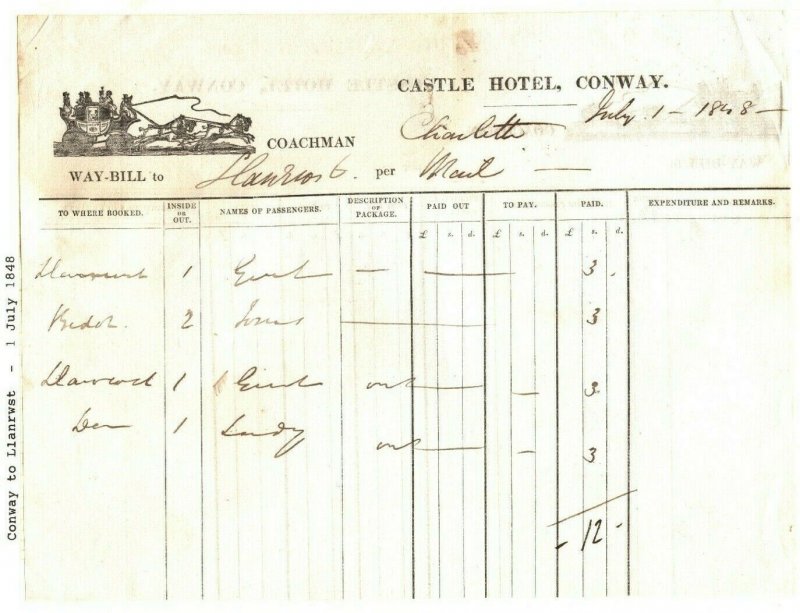 CASTLE HOTEL, CONWAY.
July 1 - 1848 -
COACHMAN Charlotte
WAY-BILL to Llanrwst per Mail —
TO WHERE BOOKED. INSIDE or OUT. NAMES OF PASSENGERS. DESCRIPTION OF PACKAGE. PAID OUT TO PAY. PAID. EXPENDITURE AND REMARKS.
£ s. d. £ s. d. £ s. d.
Llanrwst 1 Gent — 3
2 Jones 3
Llanrwst 1 Gent out — 3
1 Lady out — 3
- 12 -
Conway to Llanrwst - 1 July 1848